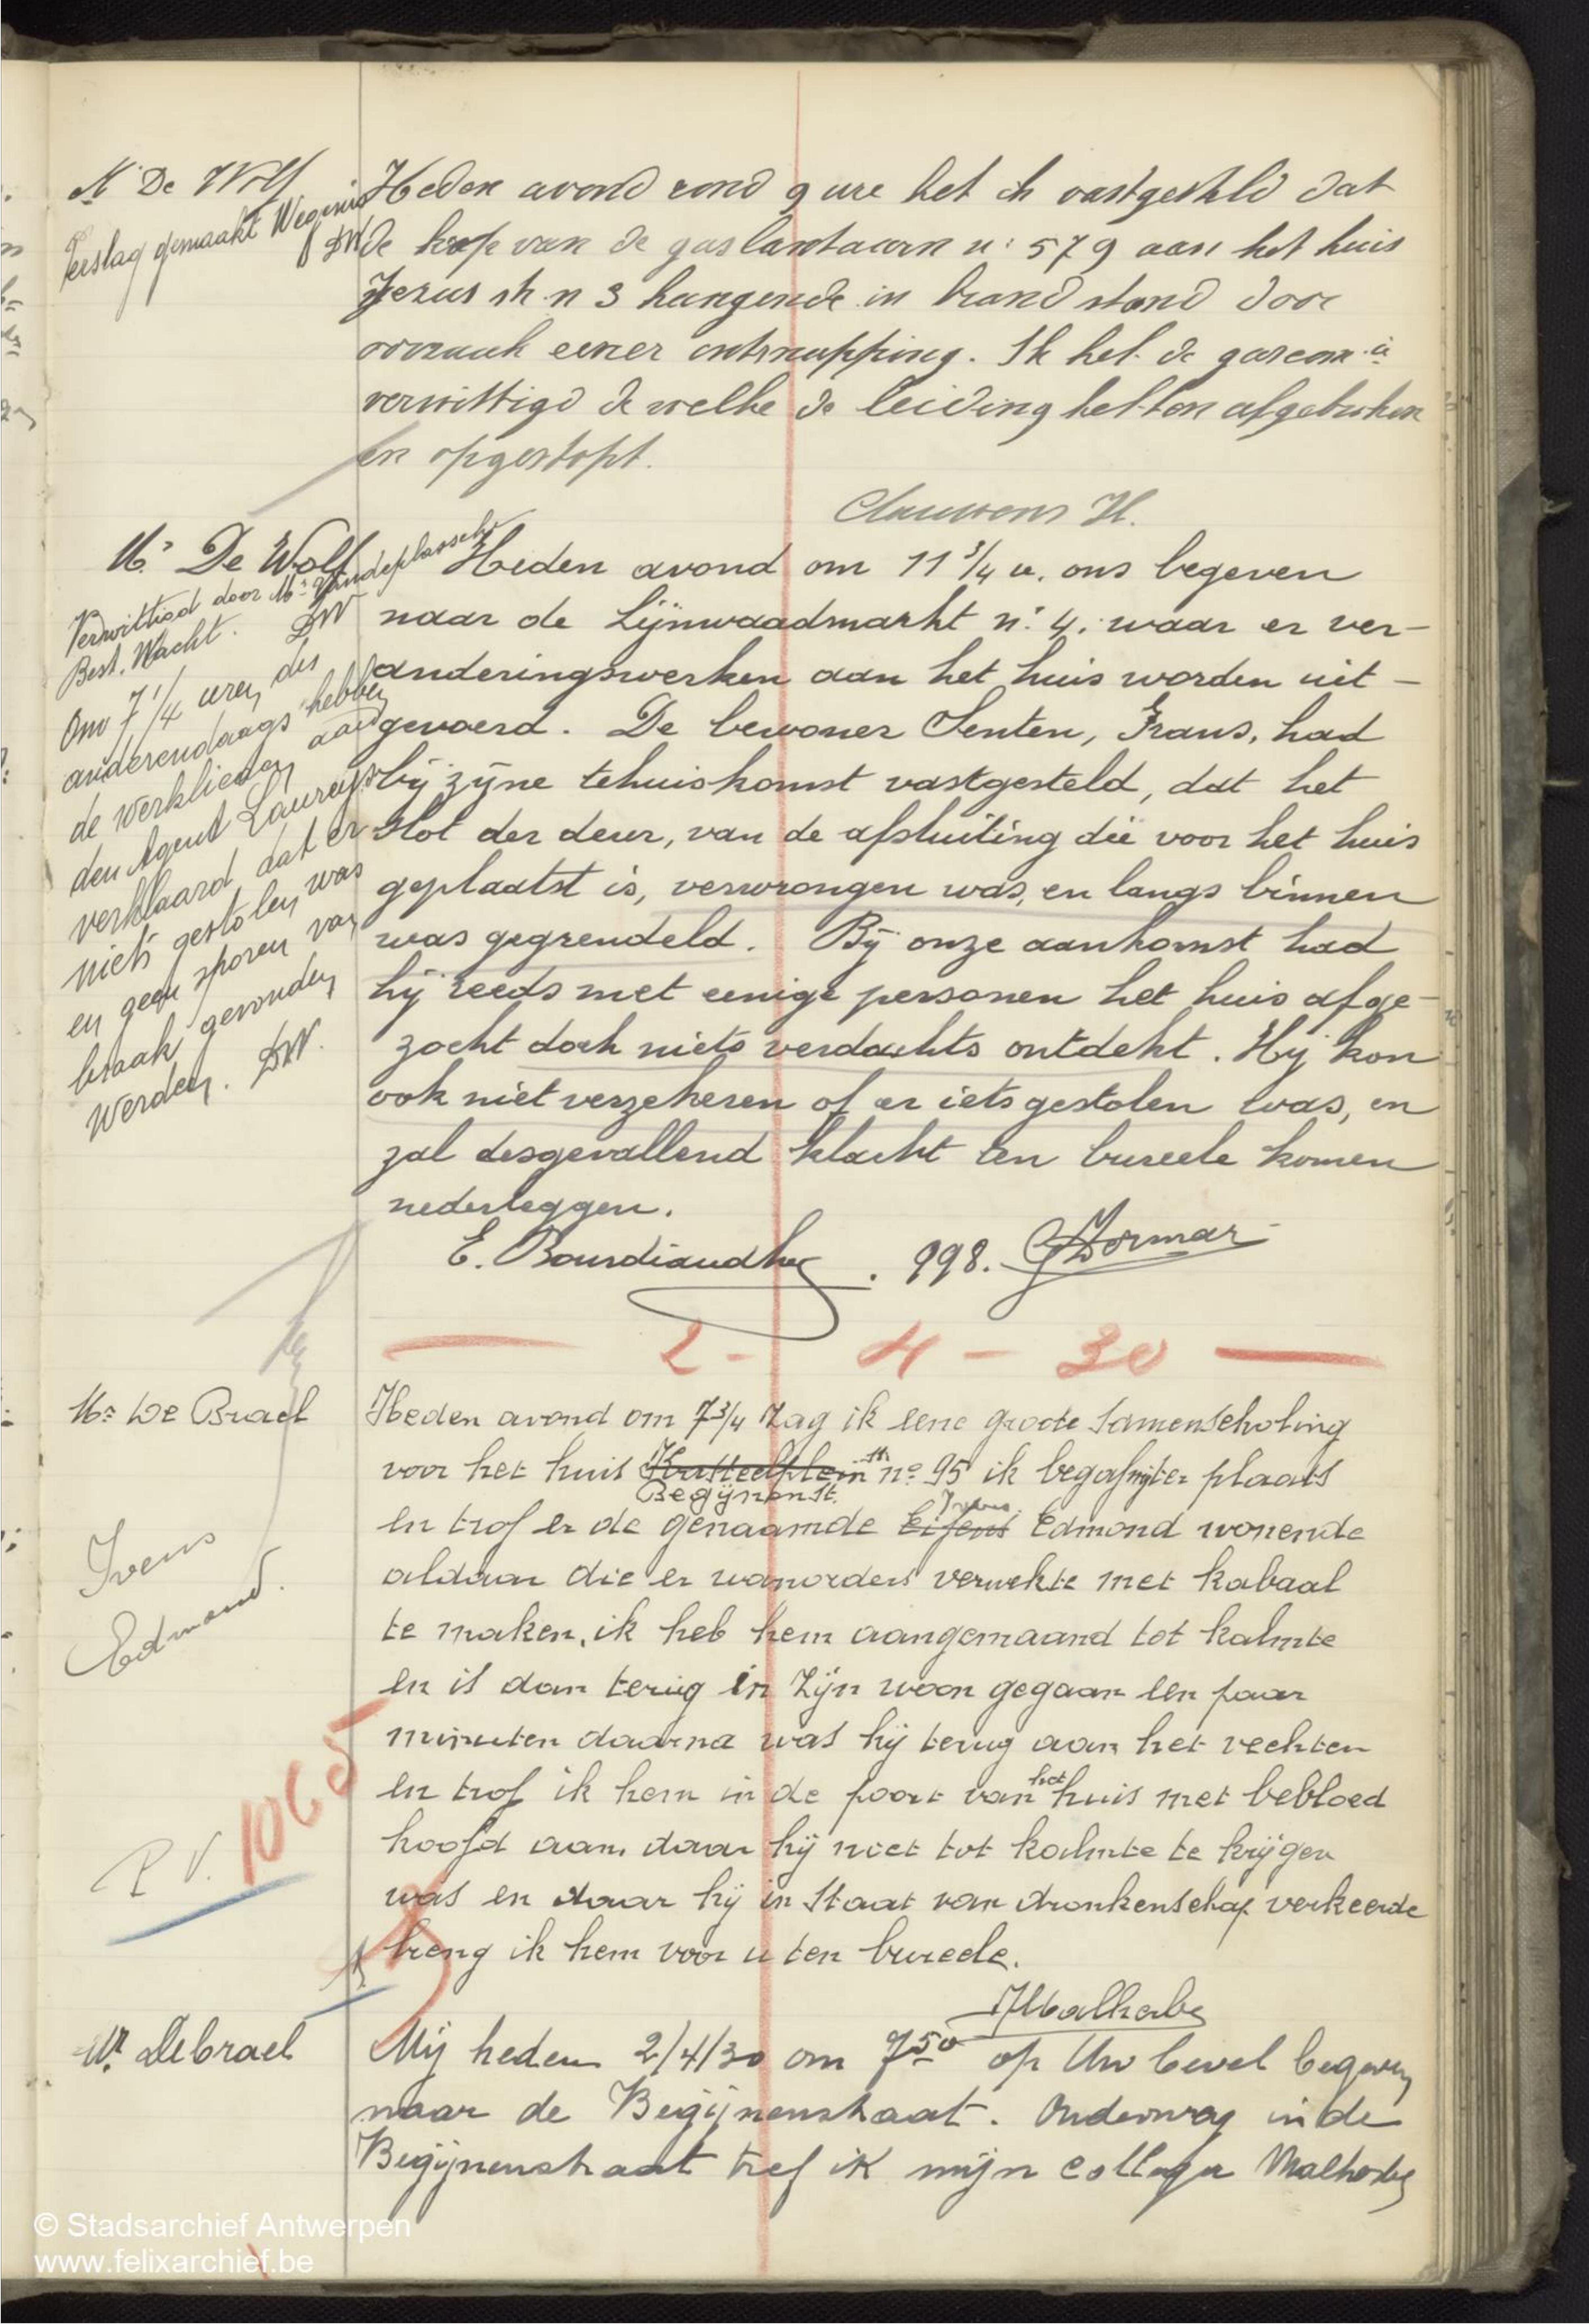 Mr De Wolf
Verslag gemaakt Wegenis
DW
Heden avond rond 9 ure heb ik vastgesteld dat
de kop van de gaslantaarn n: 579 aan het huis
Jezus str n 3 hangende in brand stond door
oorzaak eener ontsnapping. Ik heb de gascom ie
verwittigd de welke de leiding hebben afgebroken
en opgestopt.
Clauwens H.
Mr De Wolf
Verwittigd door Mr Vandeplassche
Best. Wacht. DW
Om 7 1/4 uren des
anderendaags hebben
de werklieden aan
den Agent Laureys
verklaard dat er
niets gestolen was
en geen sporen van
braak gevonden
werden. DW.
Heden avond om 11 3/4 u. ons begeven
naar de Lijnwaadmarkt n: 4, waar er ver-
anderingswerken aan het huis worden uit-
gevoerd. De bewoner Senten, Frans, had
bij zijne tehuiskomst vastgesteld, dat het
slot der deur, van de afsluiting die voor het huis
geplaatst is, verwrongen was, en langs binnen
was gegrendeld. Bij onze aankomst had
hij reeds met eenige personen het huis afge-
zocht doch niets verdachts ontdekt. Hij kon
ook niet verzekeren of er iets gestolen was, en
zal desgevallend klacht ten bureele komen
nederleggen.
E. Bourdiaudhy. 998. G Dormar
2 - 4 - 30
Mr De Brael
Ivens
Edmond.
P.V. 1065
Heden avond om 7 3/4 zag ik eene groote samenscholing
voor het huis Kasteelplein str no 95 ik begaf mij ter plaats
Begijnenst.
en trof er de genaamde Eifens Ivens Edmond wonende
aldaar die er wanorders verwekte met kabaal
te maken, ik heb hem aangemaand tot kalmte
en is dan terug in zijn woon gegaan een paar
minuten daarna was hij terug aan het vechten
en trof ik hem in de poort van het huis met bebloed
hoofd aan, daar hij niet tot kalmte te krijgen
was en daar hij in staat van dronkenschap verkeerde
breng ik hem voor u ten bureele.
Malherbe
Mr Debrael
Mij heden 2/4/30 om 7 50 op Uw bevel begeven
naar de Begijnenstraat. Onderweg in de
Begijnenstraat tref ik mijn collega Malherbe
© Stadsarchief Antwerpen
www.felixarchief.be